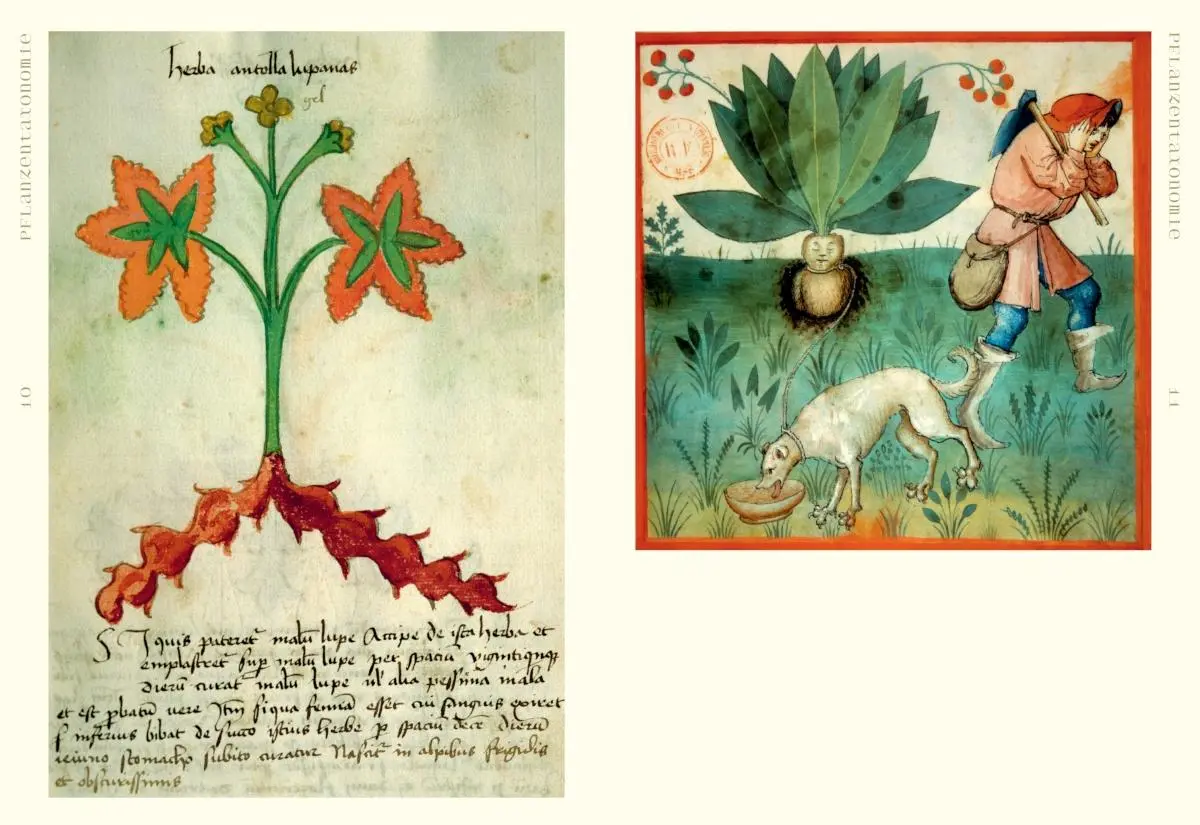 Pflanzentaxonomie
10
herba antolla lupanas
gel
SI quis pateret malū lupe Accipe de ista herba et
emplastret sup malū lupe per spaciū vigintiquqȝ
dierū curat malū lupe ul alia pessima mala
et est pbatū vere Itm siqua femīa esset cui sanguis exiret
inferius bibat de succo istius herbe p spaciū dece dierū
ieiuno stomacho subito curatur Nascit in alpibus frigidis
et obscurissimis
R F
Pflanzentaxonomie
11